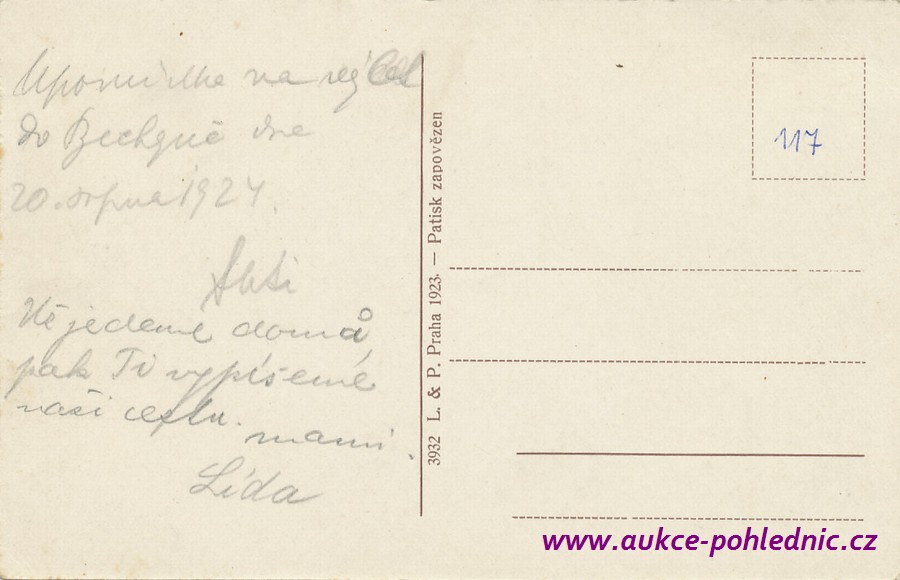 Upomínka na výlet
do Bechyně dne
20. srpna 1924.
Už jedeme domů,
pak Ti vypíšeme
naši cestu.
mami.
Lída
3932 L. & P. Praha 1923. — Patisk zapovězen
117
www.aukce-pohlednic.cz